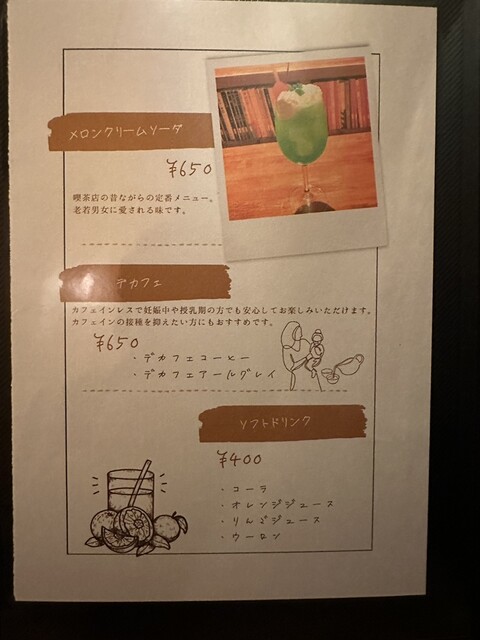 メロンクリームソーダ
¥650
喫茶店の昔ながらの定番メニュー。
老若男女に愛される味です。
デカフェ
カフェインレスで妊娠中や授乳期の方でも安心してお楽しみいただけます。
カフェインの接種を抑えたい方にもおすすめです。
¥650
・デカフェコーヒー
・デカフェアールグレイ
ソフトドリンク
¥400
・コーラ
・オレンジジュース
・りんごジュース
・ウーロン